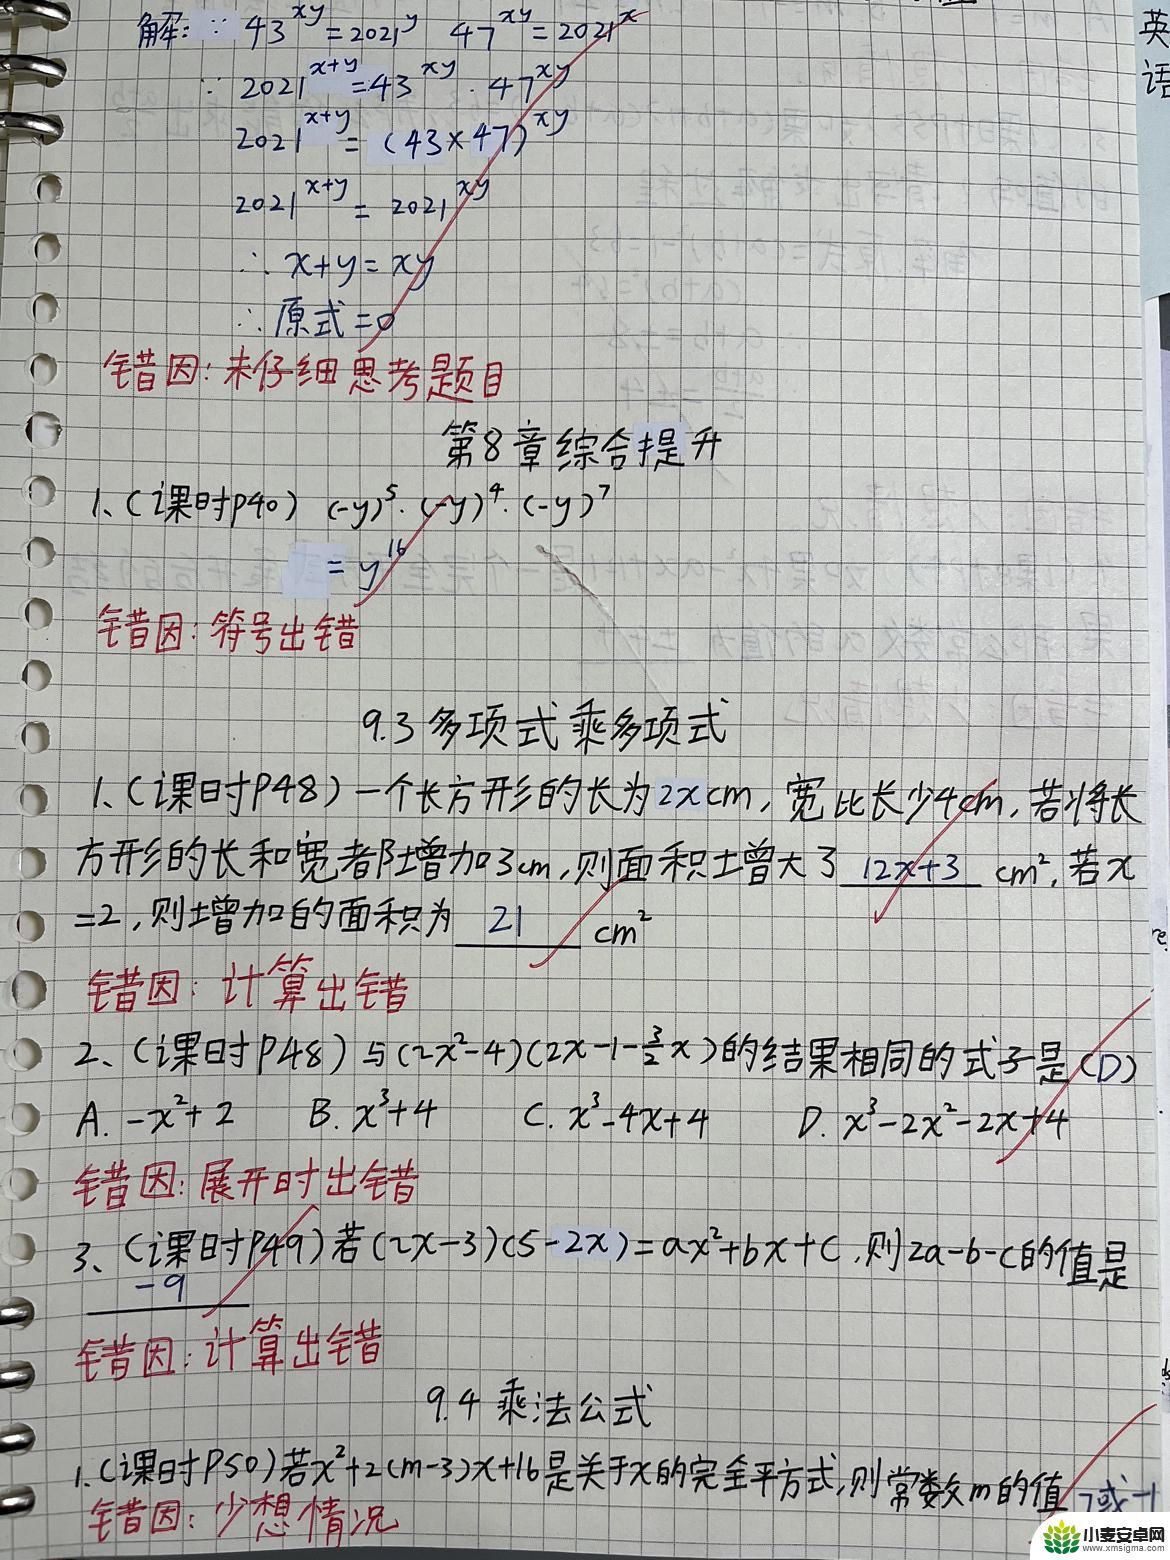 解: ∵ 43^xy = 2021^y  47^xy = 2021^x
英语
∵ 2021^x+y = 43^xy · 47^xy
2021^x+y = (43×47)^xy
2021^x+y = 2021^xy
∴ x+y = xy
∴ 原式=0
错因: 未仔细思考题目
第8章综合提升
1、(课时P40) (-y)^5 · (-y)^4 · (-y)^7
= y^16
错因: 符号出错
9.3 多项式乘多项式
1、(课时P48) 一个长方形的长为2xcm, 宽比长少4cm, 若将长
方形的长和宽都增加3cm, 则面积增大了 12x+3 cm², 若x
=2, 则增加的面积为 21 cm²
错因: 计算出错
2、(课时P48) 与(2x²-4)(2x-1-3/2x)的结果相同的式子是(D)
A. -x²+2  B. x³+4  C. x³-4x+4  D. x³-2x²-2x+4
错因: 展开时出错
3、(课时P49) 若(2x-3)(5-2x)=ax²+bx+c, 则2a-b-c的值是
-9
错因: 计算出错
9.4 乘法公式
1. (课时P50) 若x²+2(m-3)x+16是关于x的完全平方式, 则常数m的值 7或-1
错因: 少想情况
小麦安卓网
www.xmsigma.com